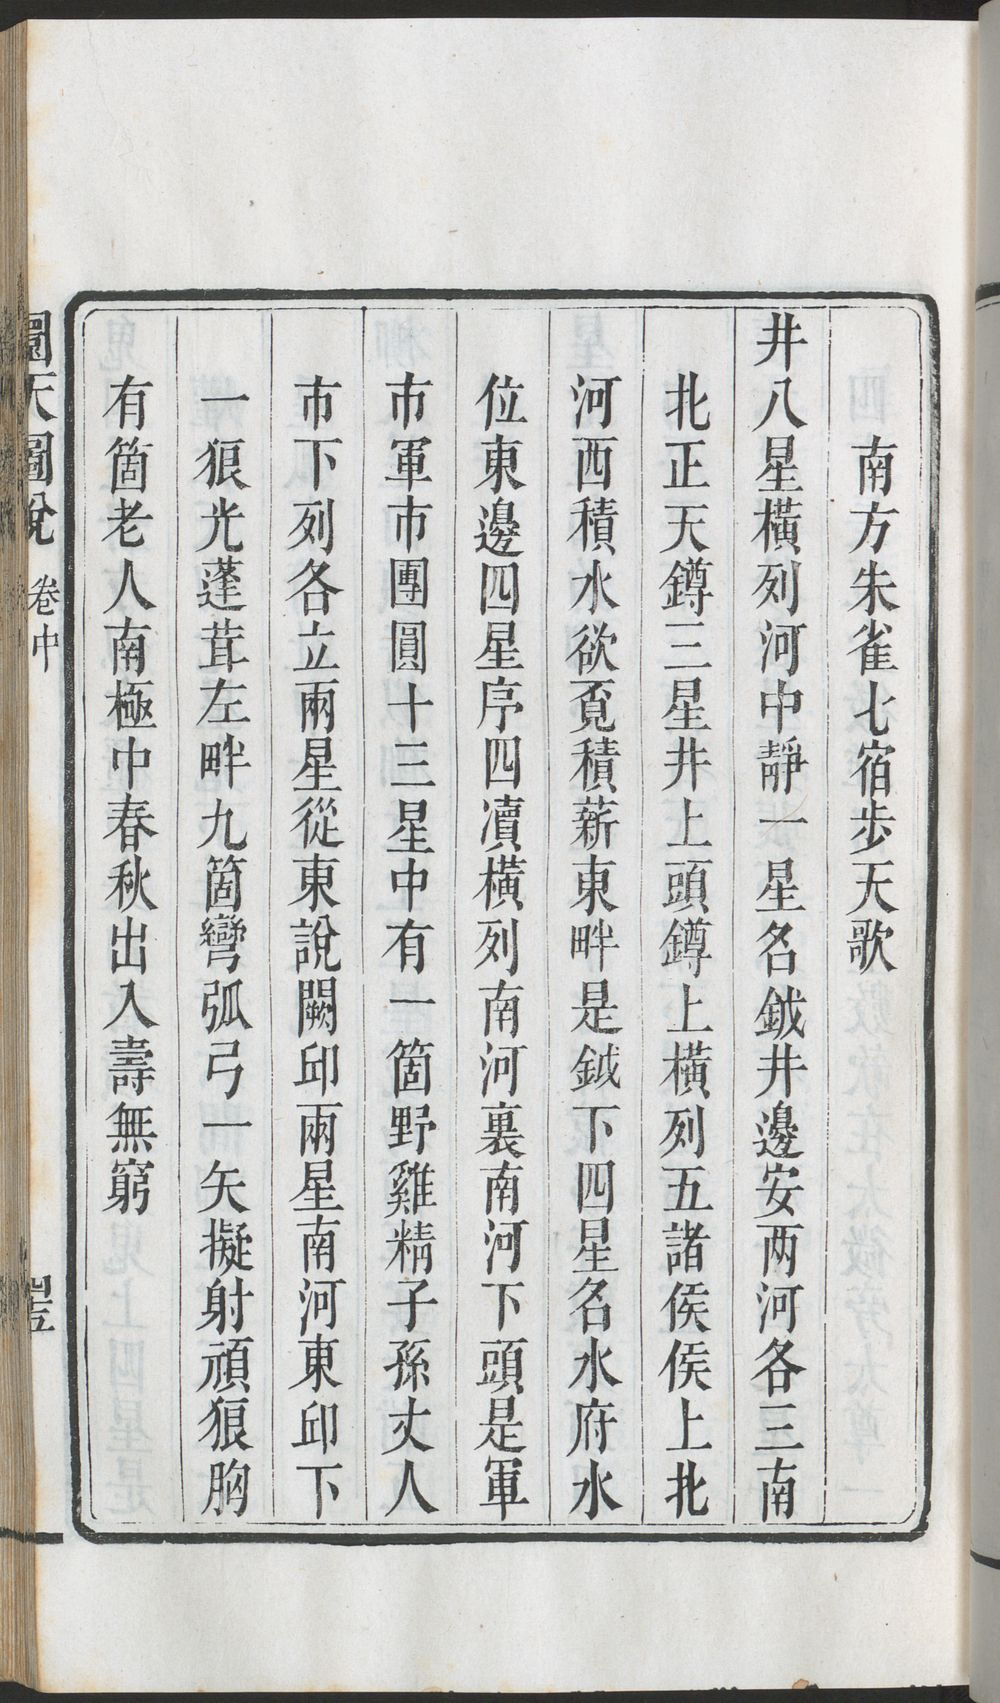 南方朱雀七宿步天歌
井八星橫列河中靜一星名鉞井邊安两河各三南
北正天鐏三星井上頭鐏上橫列五諸侯侯上北
河西積水欲覔積薪東畔是鉞下四星名水府水
位東邊四星序四瀆橫列南河裏南河下頭是軍
市軍市團圓十三星中有一箇野雞精子孫丈人
市下列各立兩星從東說闕邱兩星南河東邱下
一狼光蓬茸左畔九箇彎弧弓一矢擬射頑狼胸
有箇老人南極中春秋出入壽無窮
圜天圖說 卷中 四五